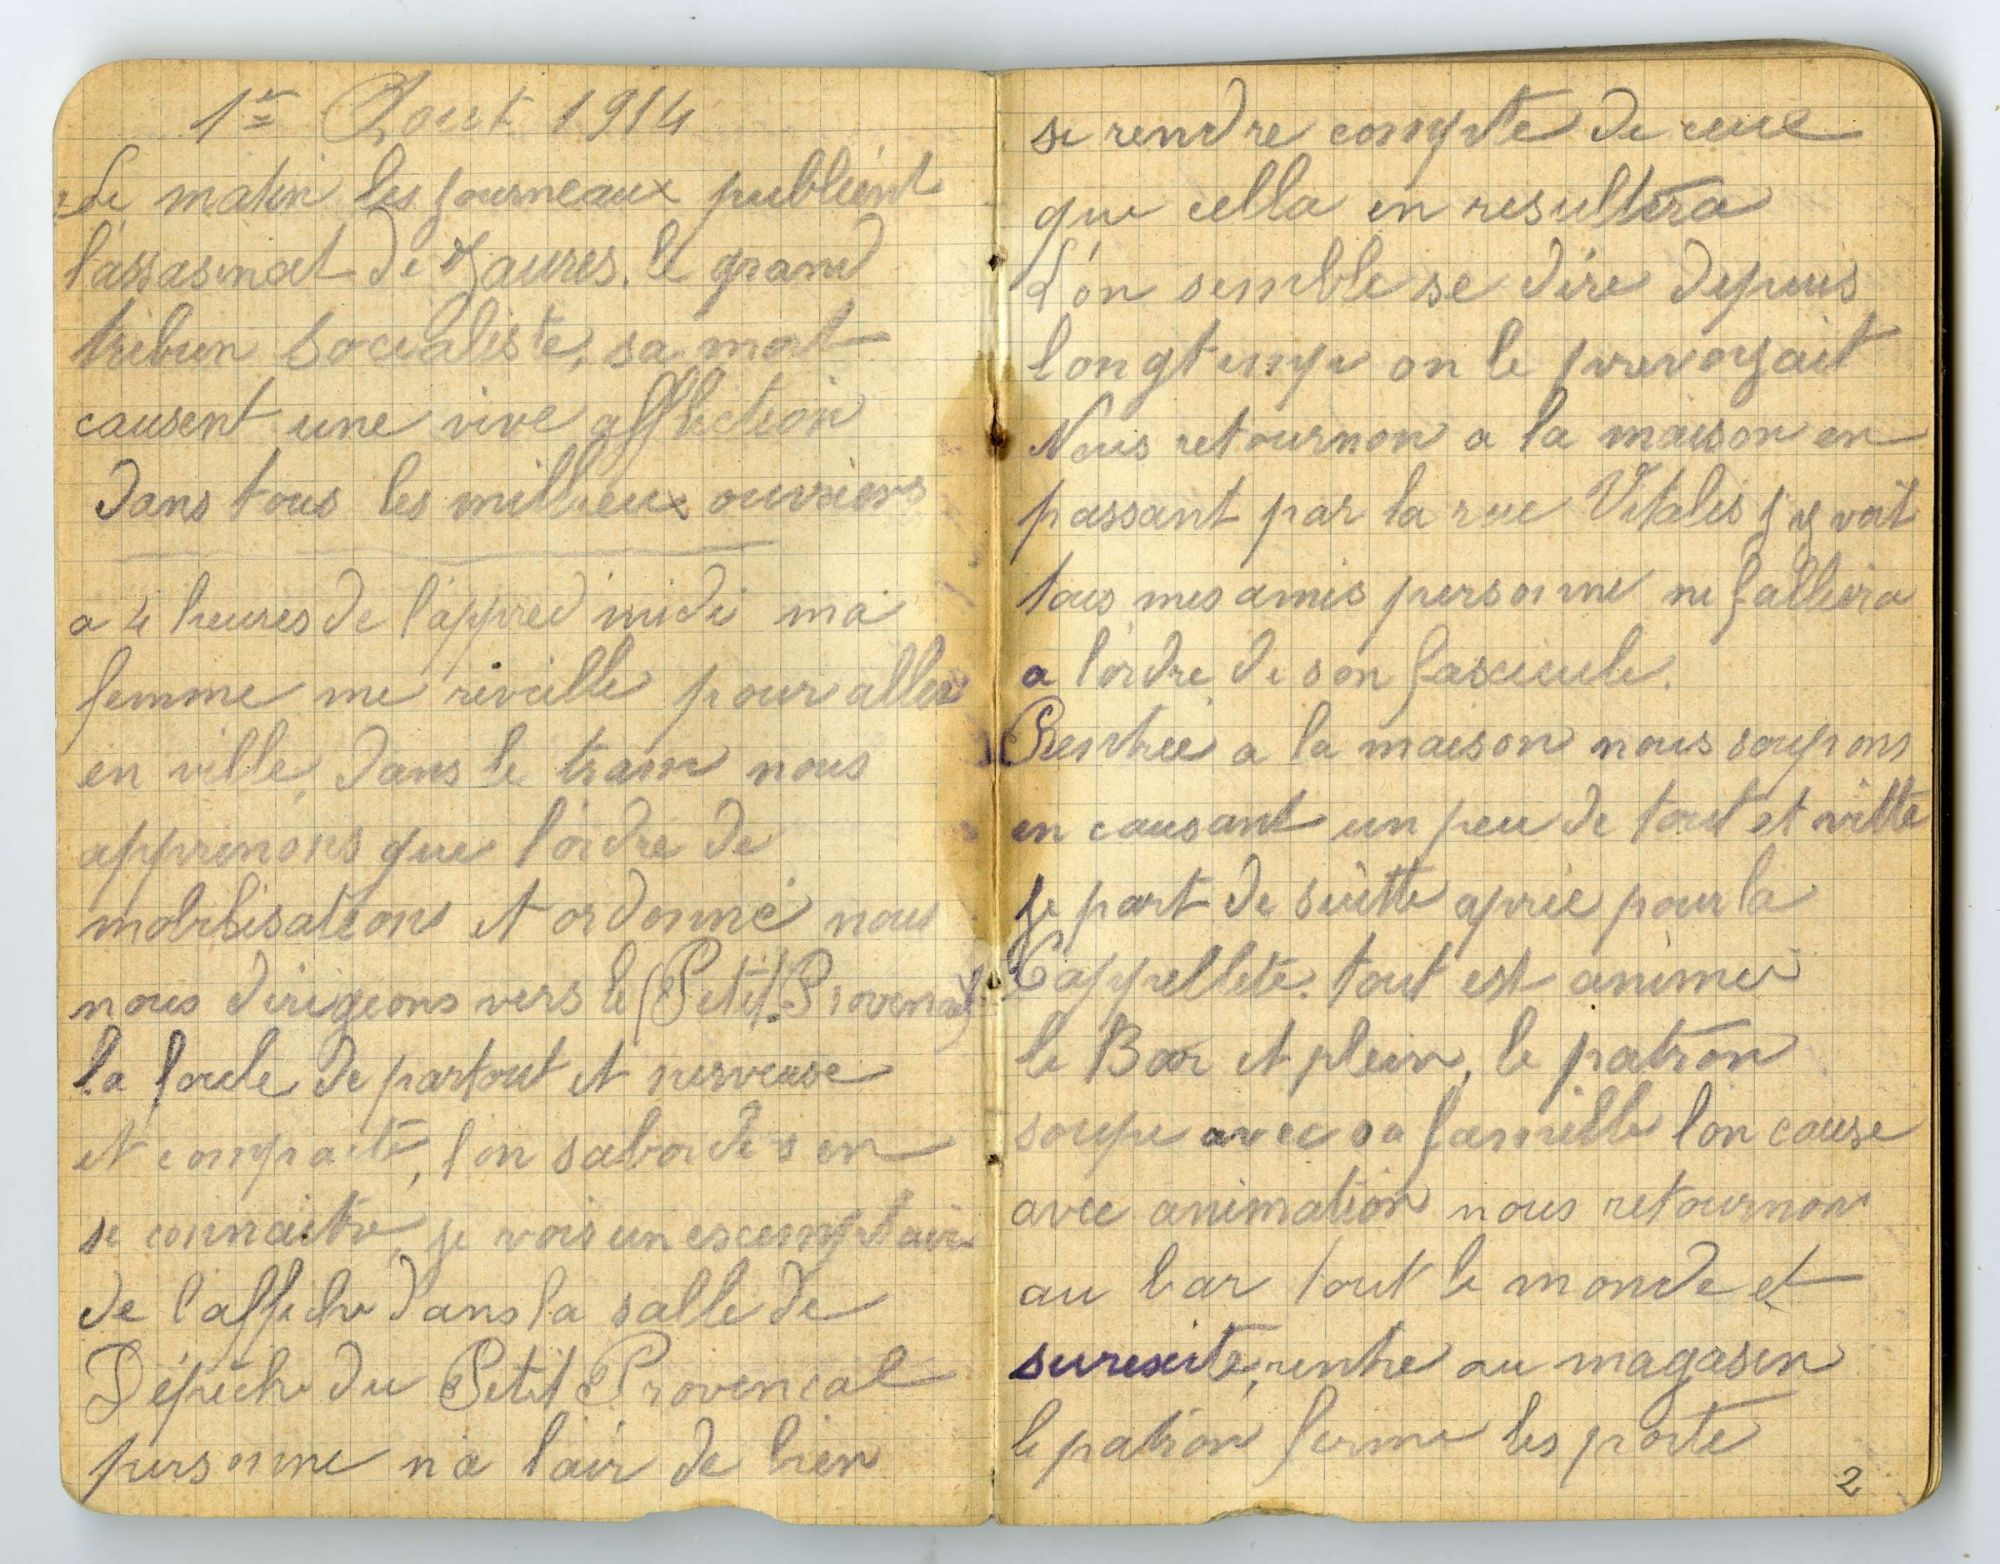 1er Aout 1914
Le matin les journeaux publient
l'assasinat de Jaures. le grand
tribun Socialiste, sa mort
causent une vive affliction
dans tous les millieux ouvriers
a 4 heures de l'appred midi ma
femme me reveille pour aller
en ville, dans le tram nous
apprenons que l'ordre de
mobilisations et ordonné nous
nous dirigeons vers le (Petit-Provencal)
la foule de partout et nerveuse
et compacte, l'on saborde s en
se connaitre, je vois un escemptaire
de l'affiche dans la salle de
Dépêche du Petit Provencal
personne n'a l'air de bien
se rendre compte de ceue
que cella en resultera
L'on semble se dire depuis
longtemps on le prevoyait
Nous retournon a la maison en
passant par la rue Vitalis j'y voit
tous mes amis personne ne failliera
a l'ordre de son fascicule.
Rentrée a la maison nous soupons
en causant un peu de tout et vitte
je part de suitte aprée pour la
Cappellete. tout est animée
le Bar et plein, le patron
soupe avec sa famille l'on cause
avec animation nous retournon
au bar tout le monde et
surexité, rentre au magasin
le patron ferme les porte
2